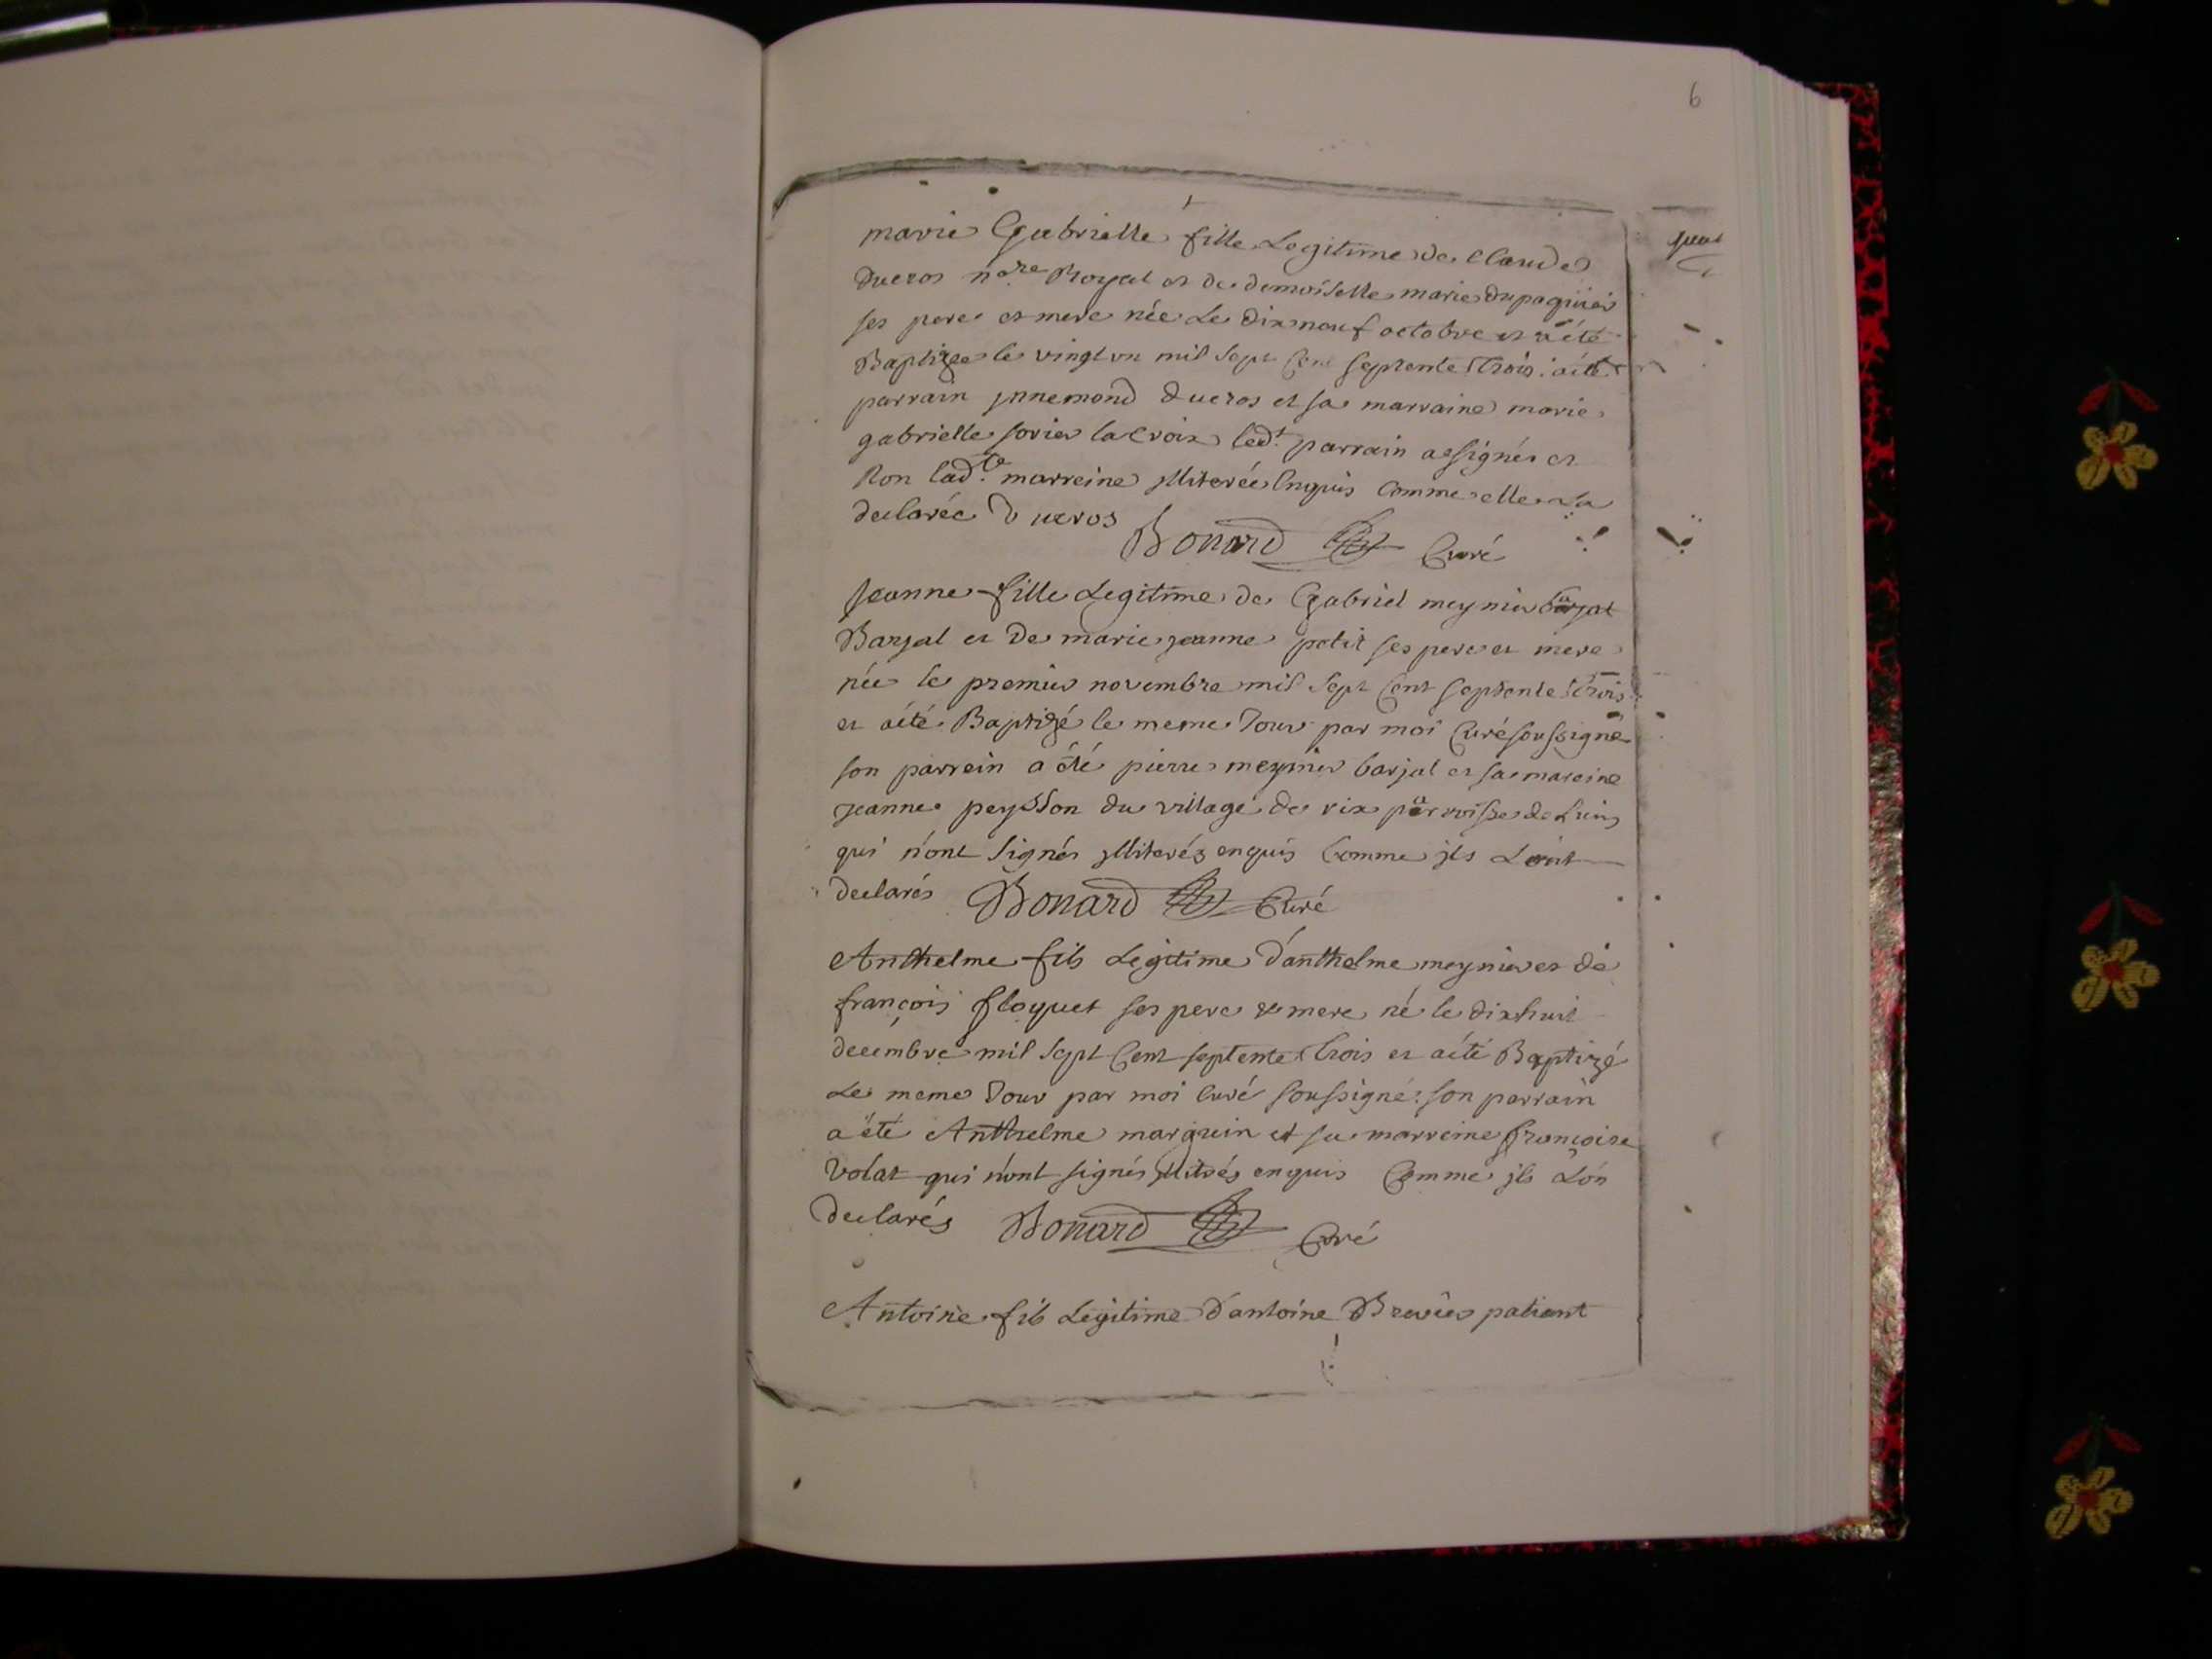 6
marie Gabrielle fille Legitime de Claude
Ducros n.re Royal et de demoiselle marie dupaquiés
ses pere et mere née Le dix neuf octobre et a été
Baptizée le vingt un mil sept Cent septente Trois. a été
parrain jnnemond ducros et sa marraine marie
gabrielle sorier lacroix led.t parrain a signés et
Non lad.te marreine jlliterée enquis Comme elle la
declarée Ducros
Bonard Curé
Jeanne fille Legitime de Gabriel meynier barjat
Barjat et de marie jeanne petit ses pere et mere
née le premier novembre mil sept Cent septente Trois
et a été Baptizé le meme Jour par moi Curé soussigné
son parrein a été pierre meynier barjat et sa mareine
jeanne peysson du village de rix parroisse de Luis
qui n'ont signés jlliterés enquis Comme jls L'ont
declarés Bonard Curé
Anthelme fils Legitime d'anthelme meynier et de
françois floquet ses pere & mere né le dix huit
decembre mil sept Cent septente Trois et a été Baptizé
Le meme Jour par moi Curé soussigné. son parrain
a été Anthelme marguin et sa marreine françoise
Volat qui n'ont signés jllitrés enquis Comme jls L'on
declarés Bonard Curé
Antoine fils Legitime d'antoine Brevier patient